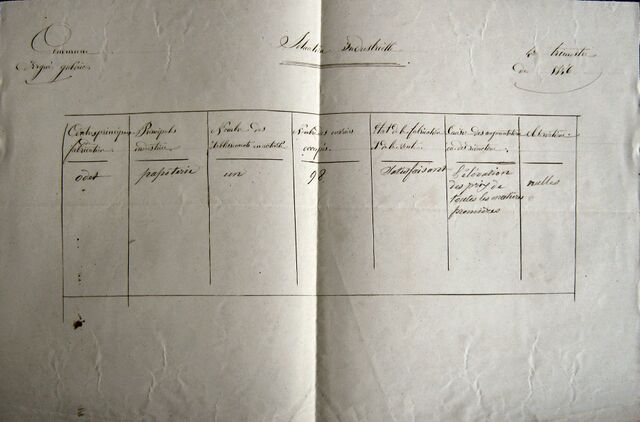 Commune
d'Ergué gabéric
Situation Industrielle
4e trimestre
de 1846
Centres principaux
fabrication
Principale
industrie
Nombre des
établissements en activité
Nombre des ouvriers
occupés
Etat de la fabrication
et de la vente
Cause des augmentations
ou des diminutions
Observations
odet
papeterie
un
98
Satisfaisant
l'élévation
des prix de
toutes les matières
premières
nulles